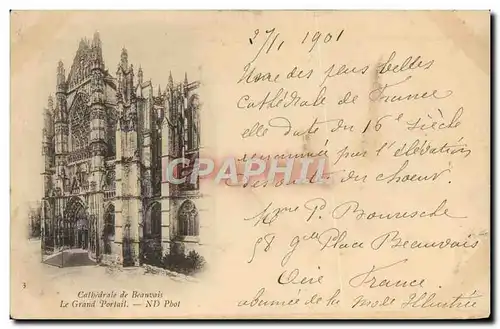 27/1 1901
Une des plus belles
Cathédrale de France
elle date du 16e siècle
renommée par l'élévation
du chœur.
Mme P.
58 gde Place Beauvais
Oise France
abonnée de la Mode Illustrée
CPARAMA.COM
Cathédrale de Beauvais
Le Grand Portail. — ND Phot